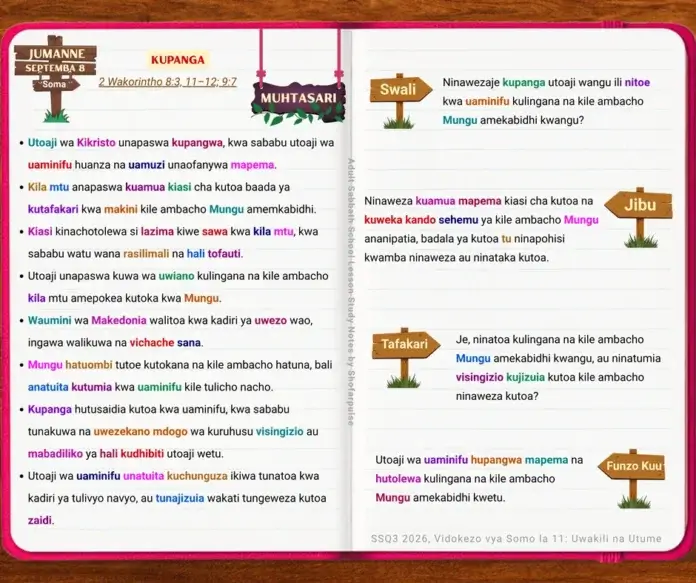 JUMANNE
SEPTEMBA 8
Soma
KUPANGA
2 Wakorintho 8:3, 11–12; 9:7
MUHTASARI
• Utoaji wa Kikristo unapaswa kupangwa, kwa sababu utoaji wa
uaminifu huanza na uamuzi unaofanywa mapema.
• Kila mtu anapaswa kuamua kiasi cha kutoa baada ya
kutafakari kwa makini kile ambacho Mungu amemkabidhi.
• Kiasi kinachotolewa si lazima kiwe sawa kwa kila mtu, kwa
sababu watu wana rasilimali na hali tofauti.
• Utoaji unapaswa kuwa wa uwiano kulingana na kile ambacho
kila mtu amepokea kutoka kwa Mungu.
• Waumini wa Makedonia walitoa kwa kadiri ya uwezo wao,
ingawa walikuwa na vichache sana.
• Mungu hatuombi tutoe kutokana na kile ambacho hatuna, bali
anatuita kutumia kwa uaminifu kile tulicho nacho.
• Kupanga hutusaidia kutoa kwa uaminifu, kwa sababu
tunakuwa na uwezekano mdogo wa kuruhusu visingizio au
mabadiliko ya hali kudhibiti utoaji wetu.
• Utoaji wa uaminifu unatuita kuchunguza ikiwa tunatoa kwa
kadiri ya tulivyo navyo, au tunajizuia wakati tungeweza kutoa
zaidi.
Adult Sabbath School Lesson Study Notes by Shofarpulse
Swali
Ninawezaje kupanga utoaji wangu ili nitoe
kwa uaminifu kulingana na kile ambacho
Mungu amekabidhi kwangu?
Jibu
Ninaweza kuamua mapema kiasi cha kutoa na
kuweka kando sehemu ya kile ambacho Mungu
ananipatia, badala ya kutoa tu ninapohisi
kwamba ninaweza au ninataka kutoa.
Tafakari
Je, ninatoa kulingana na kile ambacho
Mungu amekabidhi kwangu, au ninatumia
visingizio kujizuia kutoa kile ambacho
ninaweza kutoa?
Funzo Kuu
Utoaji wa uaminifu hupangwa mapema na
hutolewa kulingana na kile ambacho
Mungu amekabidhi kwetu.
SSQ3 2026, Vidokezo vya Somo la 11: Uwakili na Utume